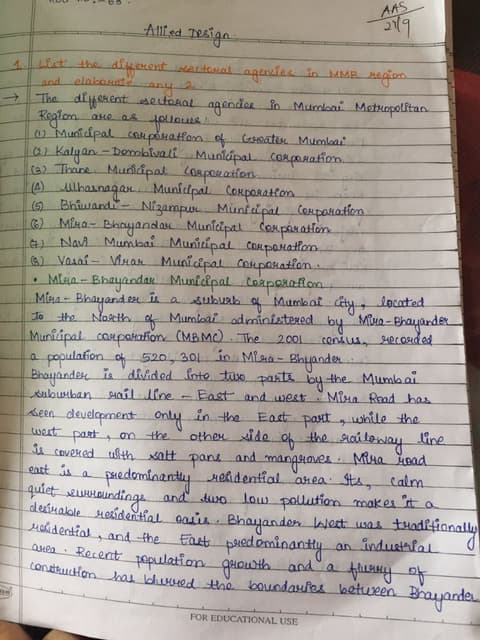 AAS
27/9
Allied Design
1. List the different sectoral agencies in MMR region
and elaborate any 2
→ The different sectoral agencies in Mumbai Metropolitan
Region are as follows:
(1) Municipal corporation of Greater Mumbai
(2) Kalyan - Dombivali Municipal corporation
(3) Thane Municipal corporation
(4) Ulhasnagar Municipal Corporation
(5) Bhiwandi - Nizampur Municipal Corporation
(6) Mira - Bhayandar Municipal Corporation
(7) Navi Mumbai Municipal corporation
(8) Vasai - Virar Municipal Corporation.
• Mira - Bhayandar Municipal Corporation
Mira - Bhayander is a suburb of Mumbai city, located
to the North of Mumbai administered by Mira-Bhayander
Municipal corporation (MBMC). The 2001 census, recorded
a population of 520,301 in Mira - Bhyander.
Bhayander is divided into two parts by the Mumbai
suburban rail line - East and west. Mira Road has
seen development only in the East part, while the
west part, on the other side of the railway line
is covered with salt pans and mangroves. Mira road
east is a predominantly residential area. Its, calm
quiet surroundings and two low pollution makes it a
desirable residential oasis. Bhayander West was traditionally
residential, and the East predominantly an industrial
area. Recent population growth and a flurry of
construction has blurred the boundaries between Bhayander
FOR EDUCATIONAL USE